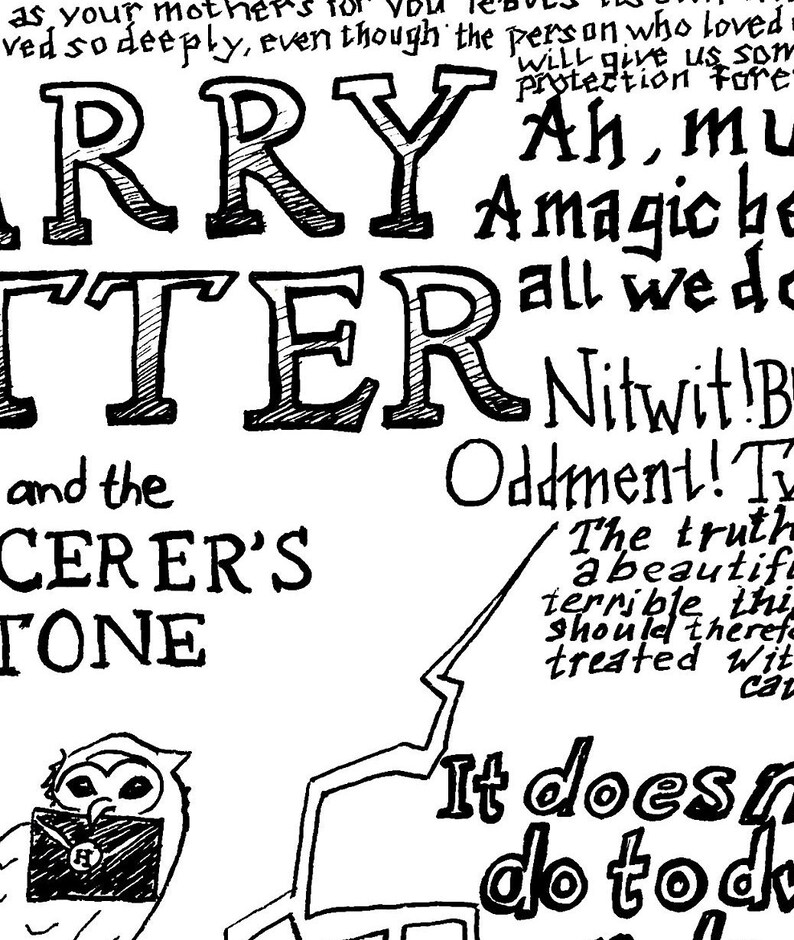 as your mother's for you leaves its own
ved so deeply, even though the person who loved
will give us som
protection fore
ARRY
Ah, mu
A magic be
TTER
all we do
Nitwit! B
Oddment! Tw
and the
CERER'S
TONE
The truth
a beautif
terrible thi
should theref
treated wit
cau
H
It doesn
do to dw